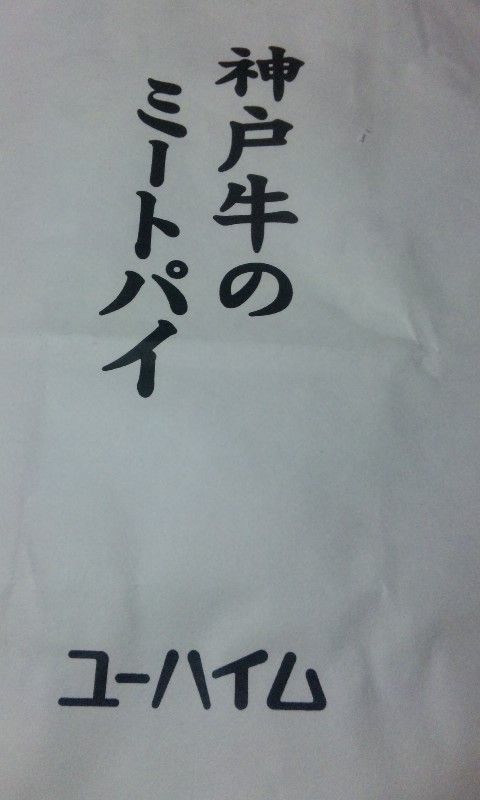 神戸牛の
ミートパイ
ユーハイム